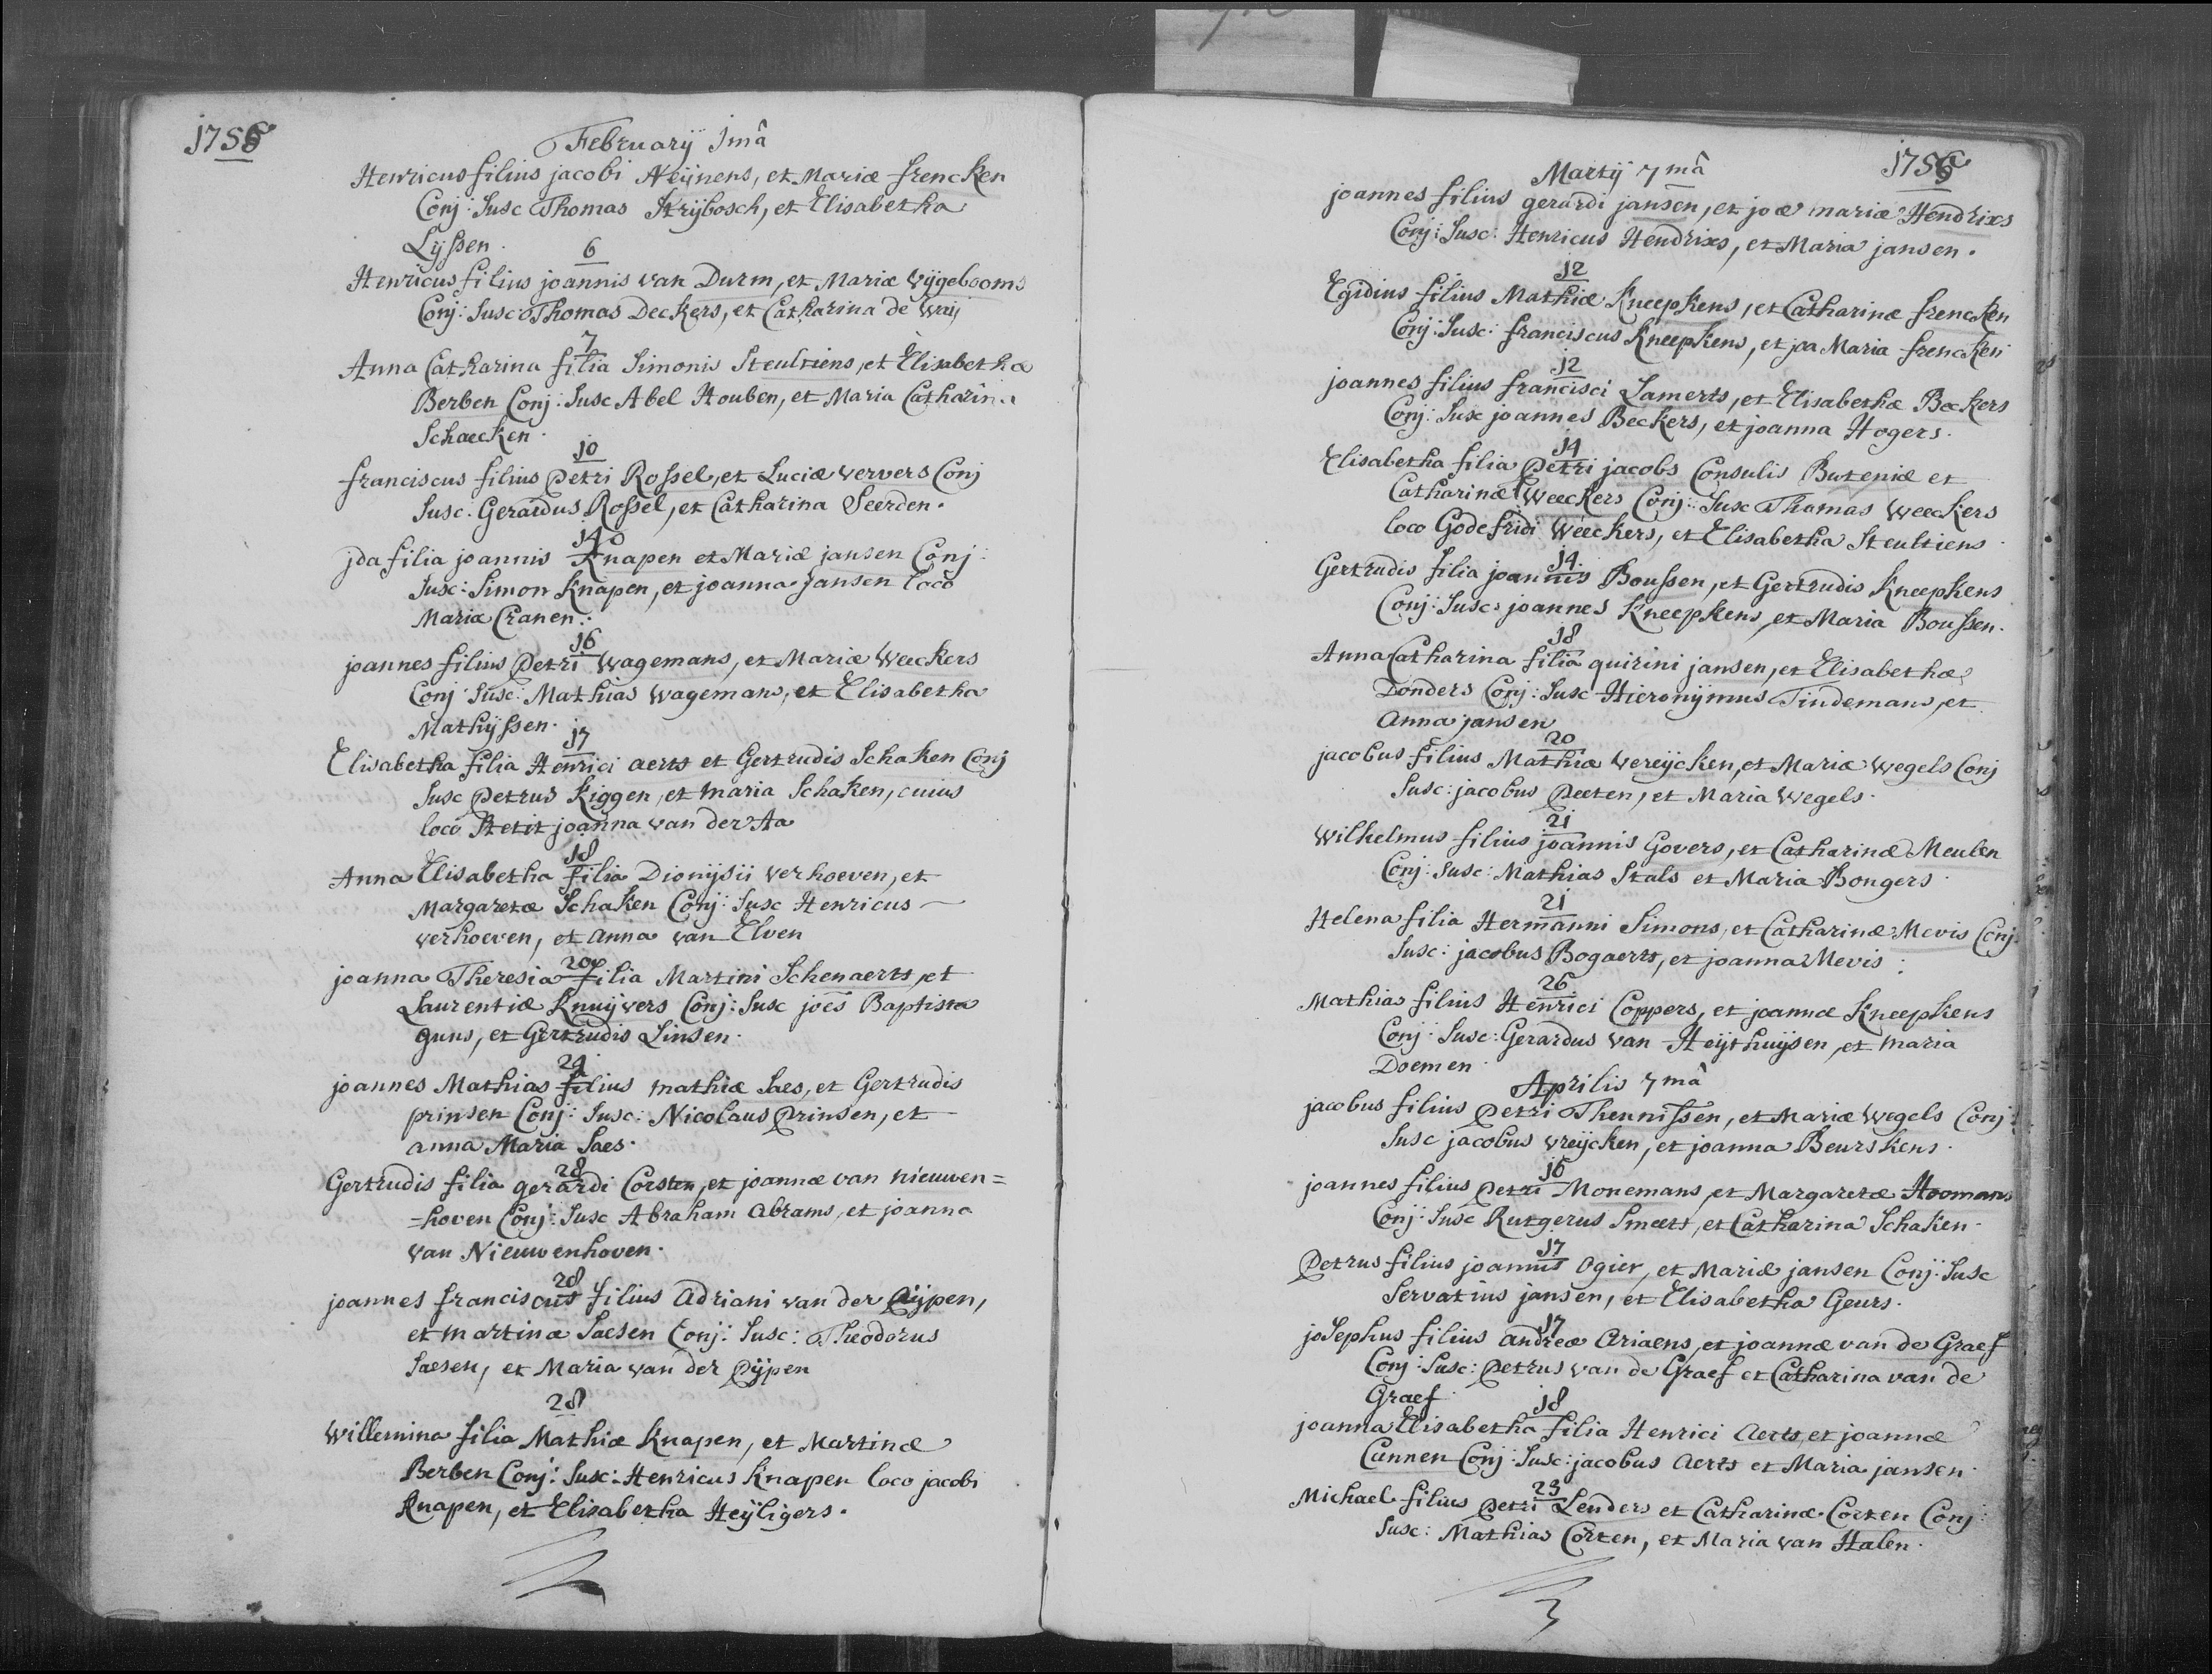 1756
February 1mâ
Henricus filius jacobi Neijnens, et Mariæ frencken
Conj: Susc Thomas Strijbosch, et Elisabetha
Lyssen.
6
Henricus filius joannis van Durm, et Mariæ Vijgebooms
Conj: Susc Thomas Deckers, et Catharina de Waij
7
Anna Catharina filia Simonis Steultiens, et Elisabethæ
Berben Conj: Susc Abel Houben, et Maria Catharina
Schaecken.
10
franciscus filius Petri Rossel, et Luciæ ververs Conj
Susc. Gerardus Rossel, et Catharina Seerden.
14
jda filia joannis Knapen et Mariæ jansen Conj:
Susc: Simon Knapen, et joanna Jansen loco
Mariæ Cranen.
16
joannes filius Petri Wagemans, et Mariæ Weeckers
Conj Susc: Mathias Wagemans, et Elisabetha
Mathijssen.
17
Elisabetha filia Henrici aerts et Gertrudis Schaken Conj
Susc Petrus Kiggen, et maria Schaken, cuius
loco Stetit joanna van der Aa
18
Anna Elisabetha filia Dionijsii verhoeven, et
Margaretæ Schaken Conj: Susc Henricus
verhoeven, et anna van Elven
20
joanna Theresia filia Martini Schenaerts, et
Laurentiæ Knuijvers Conj: Susc joës Baptista
guns, et Gertrudis Linsen.
24
joannes Mathias filius mathiæ Saes, et Gertrudis
prinsen Conj: Susc: Nicolaus Prinsen, et
anna Maria Saes.
28
Gertrudis filia gerardi Corsten, et joannæ van nieuwen=
=hoven Conj: Susc Abraham Abrams, et joanna
van Nieuwenhoven.
28
joannes franciscus filius Adriani van der Pijpen,
et martinæ Saesen Conj: Susc: Theodorus
Saesen, et Maria van der Pijpen
28
Willemina filia Mathiæ Knapen, et Martinæ
Berben Conj: Susc: Henricus Knapen loco jacobi
Knapen, et Elisabetha Heijligers.
1756
Martij 7mâ
joannes filius gerardi jansen, et joæ mariæ Hendrixs
Conj: Susc: Henricus Hendrixs, et Maria jansen.
12
Egidius filius Mathiæ Kneepkens, et Catharinæ frencken
Conj: Susc: franciscus Kneepkens, et joa Maria frencken
12
joannes filius francisci Lamerts, et Elisabethæ Beckers
Conj: Susc joannes Beckers, et joanna Hogers.
14
Elisabetha filia Petri jacobs Consulis Buteniæ et
Catharinæ Weeckers Conj: Susc Thomas weeckers
loco Godefridi Weeckers, et Elisabetha Steultiens
14
Gertrudis filia joannis Boussen, et Gertrudis Kneepkens
Conj: Susc: joannes Kneepkens, et Maria Boussen.
18
Anna Catharina filia quirini jansen, et Elisabethæ
Donders Conj: Susc Hieronijmus Tindemans, et
anna jansen
20
jacobus filius Mathiæ vereijcken, et Mariæ wegels Conj
Susc: jacobus Peeten, et Maria Wegels.
21
Wilhelmus filius joannis Govers, et Catharinæ Meulen
Conj: Susc: Mathias Stals et Maria Bongers.
21
Helena filia Hermanni Simons, et Catharinæ Mevis Conj
Susc: jacobus Bogaerts, et joanna Mevis.
26
Mathias filius Henrici Coppers, et joannæ Kneepkens
Conj: Susc: Gerardus van Heijthuijsen, et maria
Doemen.
Aprilis 7mâ
jacobus filius Petri Thennissen, et Mariæ Wegels Conj:
Susc jacobus vreijcken, et joanna Beurskens.
16
joannes filius Petri Monemans, et Margaretæ Hoomans
Conj: Susc Rutgerus Smeets, et Catharina Schaken.
17
Petrus filius joannis Ogier, et Mariæ jansen Conj: Susc
Servatius jansen, et Elisabetha Geurs.
17
joSephus filius andreæ Ariaens, et joannæ van de Graef
Conj: Susc: Petrus van de Graef et Catharina van de
Graef
18
joanna Elisabetha filia Henrici Aerts, et joannæ
Cunnen Conj: Susc: jacobus Aerts et Maria jansen.
23
Michael filius Petri Lenders et Catharinæ Corten Conj:
Susc: Mathias Corten, et Maria van Halen.